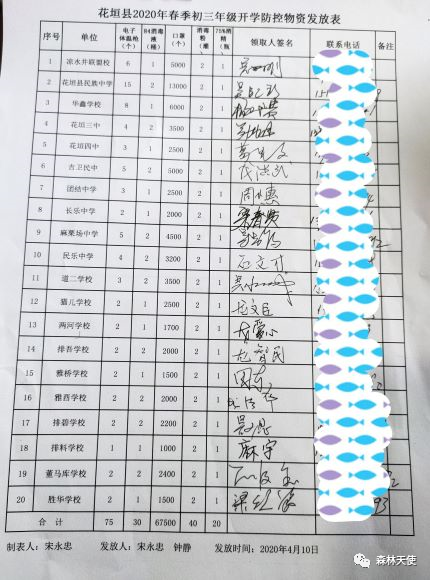 花垣县2020年春季初三年级开学防控物资发放表
序号 单位 电子体温枪（个） 84消毒液（桶） 口罩（个） 消毒粉（灌） 75%酒精（瓶） 领取人签名 联系电话 备注
1 凉水井联盟校 6 1 5000 2 1
2 花垣县民族中学 15 2 13000 2 1
3 华鑫学校 6 1 6000 2 1
4 花垣三中 4 2 3500 2 1
5 花垣四中 3 1 2500 2 1
6 古卫民中 5 2 5000 2 1
7 团结中学 3 1 2500 2 1
8 长乐中学 2 1 2000 2 1
9 麻栗场中学 5 2 4500 2 1
10 民乐中学 4 2 3200 2 1 石文才
11 道二学校 3 2 3500 2 1
12 猫儿学校 2 1 2500 2 1 龙文臣
13 两河学校 2 1 1700 2 1
14 排吾学校 2 2 2000 2 1 龙智民
15 雅桥学校 2 1 1500 2 1
16 雅酉学校 2 2 2000 2 1
17 排碧学校 2 2 2200 2 1
18 排料学校 1 1 1000 2 1 麻宇
19 董马库学校 2 2 2400 2 1
20 胜华学校 2 1 1500 2 1 93
合计 75 30 67500 40 20
制表人：宋永忠 发放人：宋永忠 钟静 发放时间：2020年4月10日
森林天使